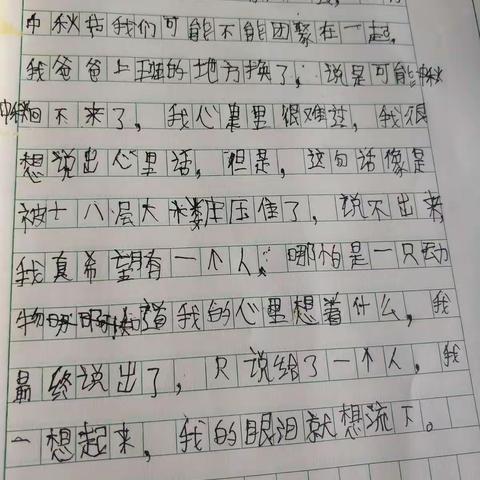 中秋节我们可能不能团聚在一起,
我爸爸上班的地方换了,说是可能中秋
中秋回不来了,我心里很难过,我很
想说出心里话,但是,这句话像是
被十八层大楼压住了,说不出来
我真希望有一个人,哪怕是一只动
物知道我的心里想着什么,我
最终说出了,只说给了一个人,我
一想起来,我的眼泪就想流下。